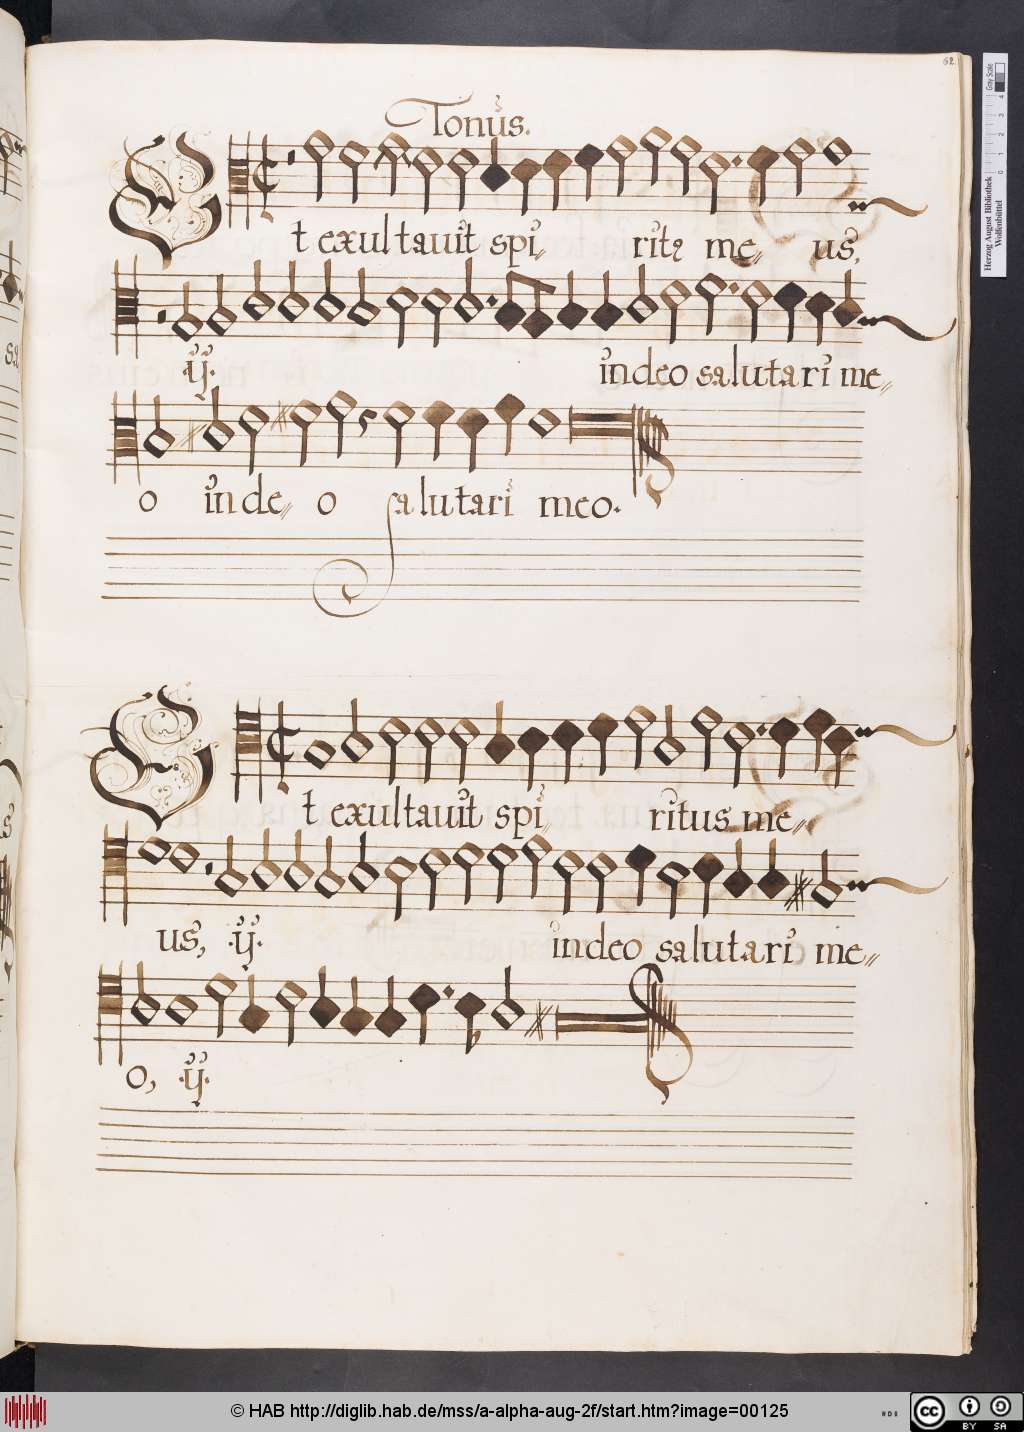 62
Tonus.
Et exultauit spi= ritꝫ me= us,
.ÿ. in deo salutari me=
o in de= o salutari meo.
Et exultauit spi= ritus me=
us, .ÿ. in deo salutari me=
o, .ÿ.
Gray Scale
0 1 2 3 4
Herzog August Bibliothek
Wolfenbüttel
© HAB http://diglib.hab.de/mss/a-alpha-aug-2f/start.htm?image=00125
cc BY SA